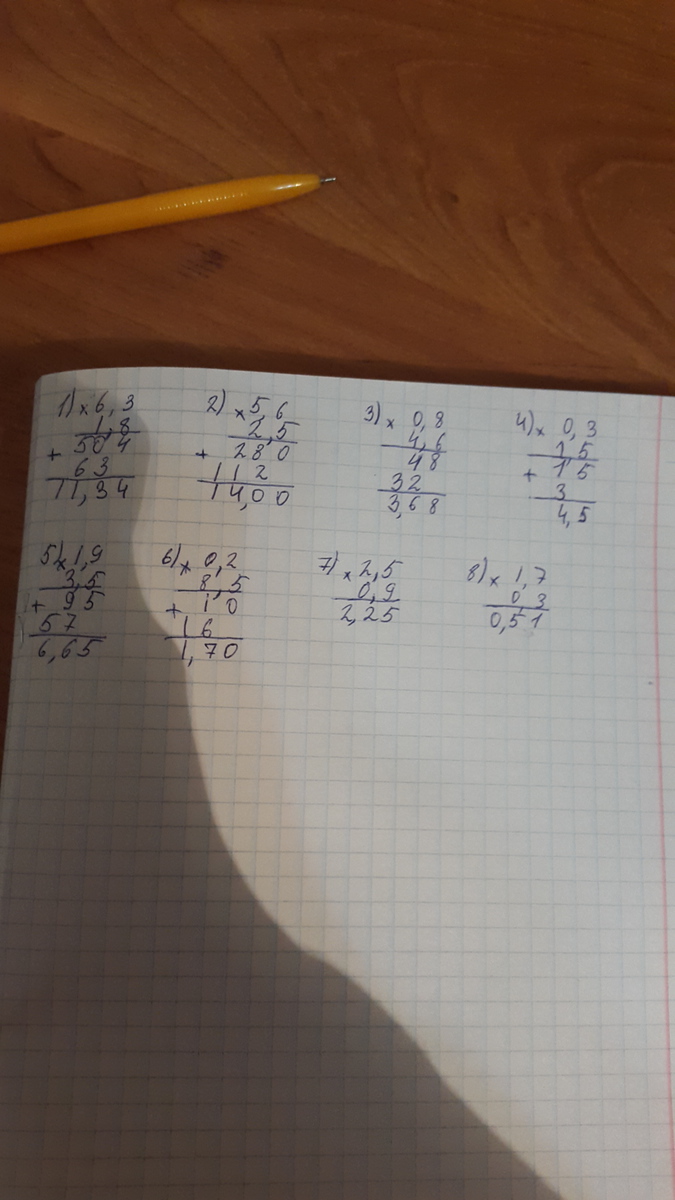 1) × 6,3
1,8
+ 504
63
11,34
2) × 5,6
2,5
+ 280
112
14,00
3) × 0,8
4,6
48
32
3,68
4) × 0,3
15
+ 15
3
4,5
5) × 1,9
3,5
+ 95
57
6,65
6) × 0,2
8,5
+ 10
16
1,70
7) × 2,5
0,9
2,25
8) × 1,7
0,3
0,51